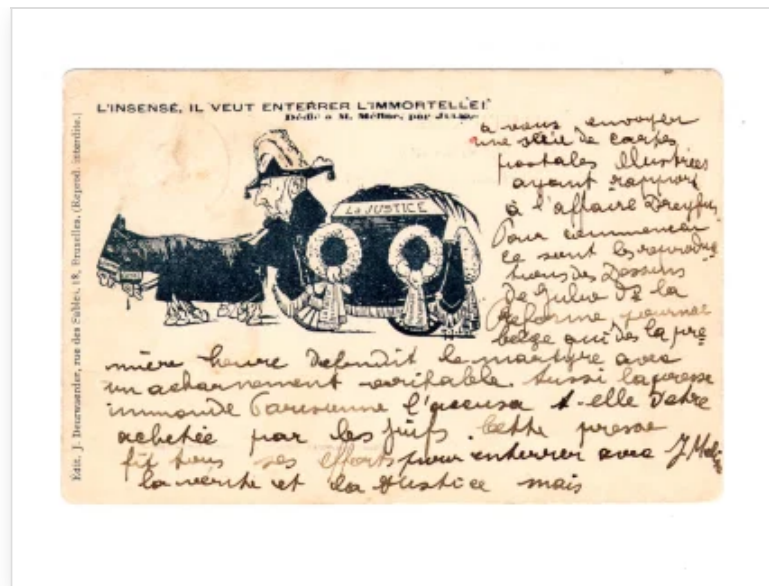 L'INSENSÉ, IL VEUT ENTERRER L'IMMORTELLE!
Dédié a M. Méline, par JULIO
LA JUSTICE
Édit. J. Deurwaerder, rue des Sables, 18, Bruxelles. (Reprod. interdite.)
à vous envoyer
une série de cartes
postales illustrées
ayant rapport
à l'affaire Dreyfus
Pour commencer
ce sont les reproduc
tions des Dessins
de Julio de la
Réforme, journal
belge qui dès la pre
mière heure defendit le martyre avec
un acharnement veritable. Aussi la presse
immonde Parisienne l'accusa t-elle d'être
achetée par les juifs. Cette presse
fit tous ses efforts pour enterrer avec J Meli
la verité et la Justice mais